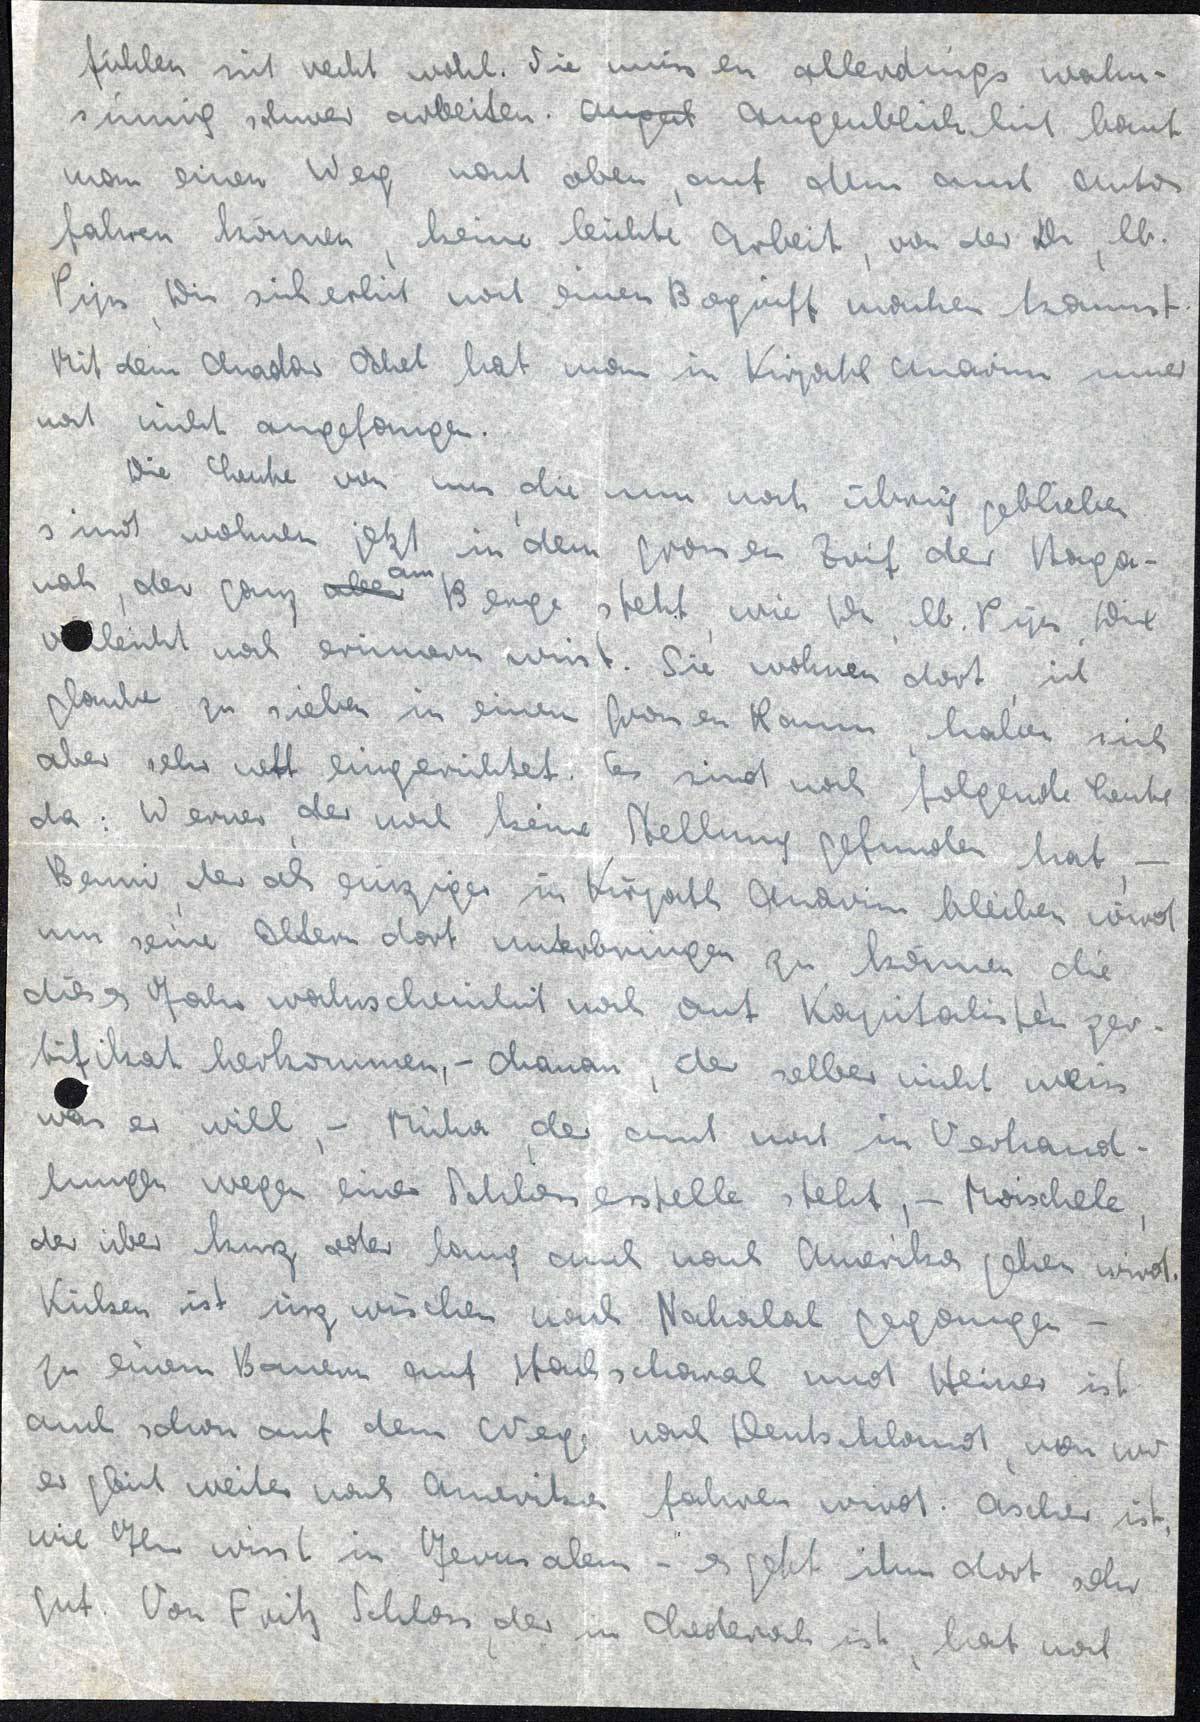 fühlen sich recht wohl. Sie müssen allerdings wahn-
sinnig schwer arbeiten. Augenblicklich baut
man einen Weg nach oben, auf dem auch Autos
fahren können, keine leichte Arbeit, von der Du, lb.
Pips, Dir sicherlich noch einen Begriff machen kannst.
Mit dem Chadar Ochel hat man in Kirjath Anavim immer
noch nicht angefangen.
Die Leute von uns, die nun noch übrig geblieben
sind wohnen jetzt in dem grossen Zrif der Haga-
nah, der ganz am Berge steht, wie Du, lb. Pips, Dich
vielleicht noch erinnern wirst. Sie wohnen dort, ich
glaube zu sieben in einem grossen Raum, haben sich
aber sehr nett eingerichtet. Es sind noch folgende Leute
da: Werner, der noch keine Stellung gefunden hat, –
Benni, der als einziger in Kirjath Anavim bleiben wird
um seine Eltern dort unterbringen zu können die
dieses Jahr wahrscheinlich noch auf Kapitalisten zer-
tifikat herkommen, – Chanan, der selber nicht weiss
was er will, – Micha, der auch noch in Verhand-
lungen wegen einer Schlosserstelle steht, – Moischele,
der über kurz oder lang auch nach Amerika gehen wird.
Küken ist inzwischen nach Nahalal gegangen –
zu einem Bauern auf Hachscharah und Heiner ist
auch schon auf dem Wege nach Deutschland, von wo
er gleich weiter nach Amerika fahren wird. Ascher ist,
wie Ihr wisst in Jerusalem – es geht ihm dort sehr
gut. Von Fritz Schloss, der in Chederah ist, hat noch